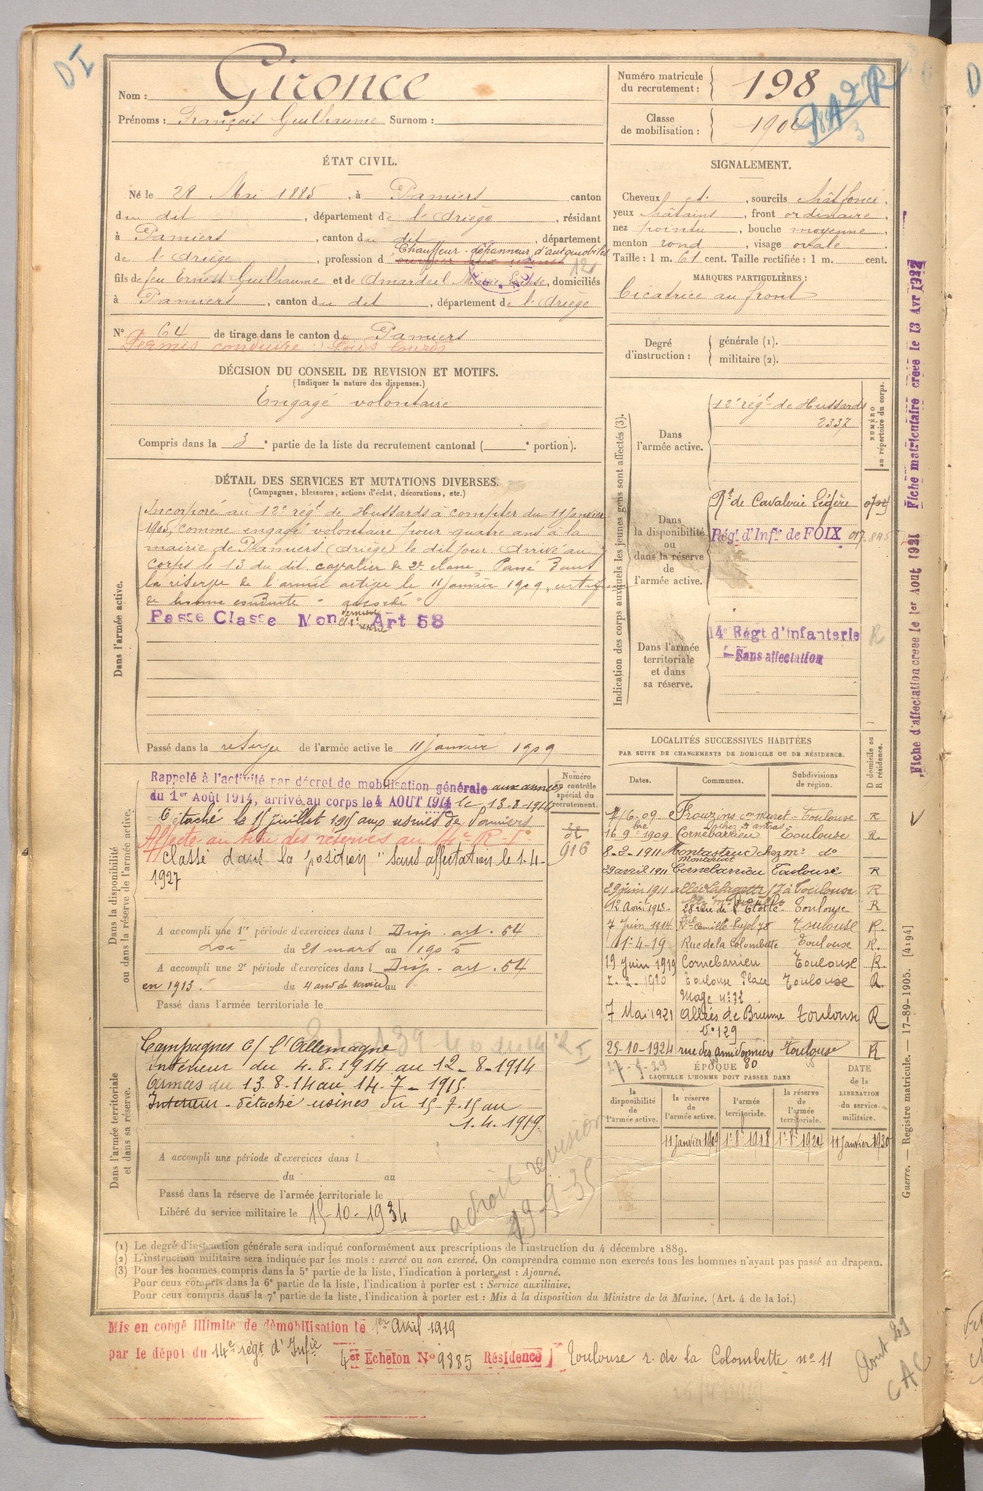 D I
Nom : Gironce
Prénoms : François Guilhaume Surnom :
Numéro matricule du recrutement : 198
Classe de mobilisation :
ÉTAT CIVIL.
Né le 28 Mai 1885, à Pamiers canton
du dit, département de l'Ariège, résidant
à Pamiers, canton du dit, département
de l'Ariège, profession de Chauffeur-dépanneur d'automobiles
fils de feu Ernest Guilhaume et de Marie, domiciliés
à Pamiers, canton du dit, département de l'Ariège
N° 64 de tirage dans le canton de Pamiers
Permis conduire : Poids lourds
DÉCISION DU CONSEIL DE REVISION ET MOTIFS.
(Indiquer la nature des dispenses.)
Engagé volontaire
Compris dans la 3e partie de la liste du recrutement cantonal ( e portion).
SIGNALEMENT.
Cheveux, sourcils chât. foncé,
yeux châtains, front ordinaire,
nez pointu, bouche moyenne,
menton rond, visage ovale.
Taille : 1 m. 61 cent. Taille rectifiée : 1 m. cent.
MARQUES PARTICULIÈRES :
Cicatrice au front
Degré d'instruction : générale (1).
militaire (2).
DÉTAIL DES SERVICES ET MUTATIONS DIVERSES.
(Campagnes, blessures, actions d'éclat, décorations, etc.)
Dans l'armée active.
Incorporé au 12e régt de Hussards à compter du 11 Janvier
1905, comme engagé volontaire pour quatre ans à la
mairie de Pamiers (Ariège) le dit jour. Arrivé au
corps le 13 du dit cavalier de 2e classe. Passé dans
la réserve de l'armée active le 11 Janvier 1909, certificat
de bonne conduite "accordé"
Passe Classe Mon Art 58
Passé dans la réserve de l'armée active le 11 janvier 1909
Indication des corps auxquels les jeunes gens sont affectés (3).
NUMÉRO au répertoire du corps.
Dans l'armée active.
12e régt de Hussards
2337
Dans la disponibilité ou dans la réserve de l'armée active.
Rt de Cavalerie Légère
Régt d'Infie de FOIX
Dans l'armée territoriale et dans sa réserve.
14e Régt d'Infanterie
Sans affectation
R
Dans la disponibilité ou dans la réserve de l'armée active.
Numéro au contrôle spécial du recrutement.
Rappelé à l'activité par décret de mobilisation générale aux armées
du 1er Août 1914, arrivé au corps le 4 AOUT 1914 le 13-8-1914
Détaché le 15 juillet 1915 aux usines de Pamiers
Affecté au titre des réserves au 14e R. I.
Classé dans la position "sans affectation" le 1-4-
1927
916
A accompli une 1re période d'exercices dans l Disp. art. 54
Loi du 21 mars au 1905
A accompli une 2e période d'exercices dans l Disp. art. 54
en 1913. du 4 ans de service au
Passé dans l'armée territoriale le
Dans l'armée territoriale et dans sa réserve.
Campagnes c/ l'Allemagne
Intérieur du 4.8.1914 au 12-8-1914
Armées du 13.8.14 au 14.7-1915
Intérieur - détaché usines du 15.7.15 au
1.4.1919.
A accompli une période d'exercices dans l
du au
Passé dans la réserve de l'armée territoriale le
Libéré du service militaire le 15-10-1934
a droit revision
LOCALITÉS SUCCESSIVES HABITÉES
PAR SUITE DE CHANGEMENTS DE DOMICILE OU DE RÉSIDENCE.
Dates. Communes. Subdivisions de région. D domicile ou R résidence.
Frouzins Toulouse R
16 9bre 1909 Cornebarrieu Toulouse R
8-2-1911 do
29 avril 1911 Cornebarrieu Toulouse R
29 juin 1911 allées Lafayette Toulouse R
12 Août 1913 28 rue de l'Etoile Toulouse R
7 Juin 1914 Camille Pujol 78 Toulouse R.
1-4-19 Rue de la Colombette Toulouse R.
19 Juin 1919 Cornebarrieu Toulouse R.
Toulouse Place Mage n° 32 Toulouse R.
7 Mai 1921 Allées de Brienne n° 129 Toulouse R
25-10-1924 rue des amidonniers 80 Toulouse R
ÉPOQUE
À LAQUELLE L'HOMME DOIT PASSER DANS
DATE de la LIBÉRATION du service militaire.
la disponibilité de l'armée active. la réserve de l'armée active. l'armée territoriale. la réserve de l'armée territoriale.
11 janvier 1909 11 janvier 1930
(1) Le degré d'instruction générale sera indiqué conformément aux prescriptions de l'instruction du 4 décembre 1889.
(2) L'instruction militaire sera indiquée par les mots : exercé ou non exercé. On comprendra comme non exercés tous les hommes n'ayant pas passé au drapeau.
(3) Pour les hommes compris dans la 5e partie de la liste, l'indication à porter est : Ajourné.
Pour ceux compris dans la 6e partie de la liste, l'indication à porter est : Service auxiliaire.
Pour ceux compris dans la 7e partie de la liste, l'indication à porter est : Mis à la disposition du Ministre de la Marine. (Art. 4 de la loi.)
Mis en congé illimité de démobilisation le 1er Avril 1919
par le dépot du 14e régt d'Infie 4er Echelon N° 9385 Résidence Toulouse r. de la Colombette n° 11
Guerre. — Registre matricule. — 17-89-1905. [4194]
Fiche d'affectation créée le 1er Aout 1921 Fiche matriculaire créée le 13 Avr 1922